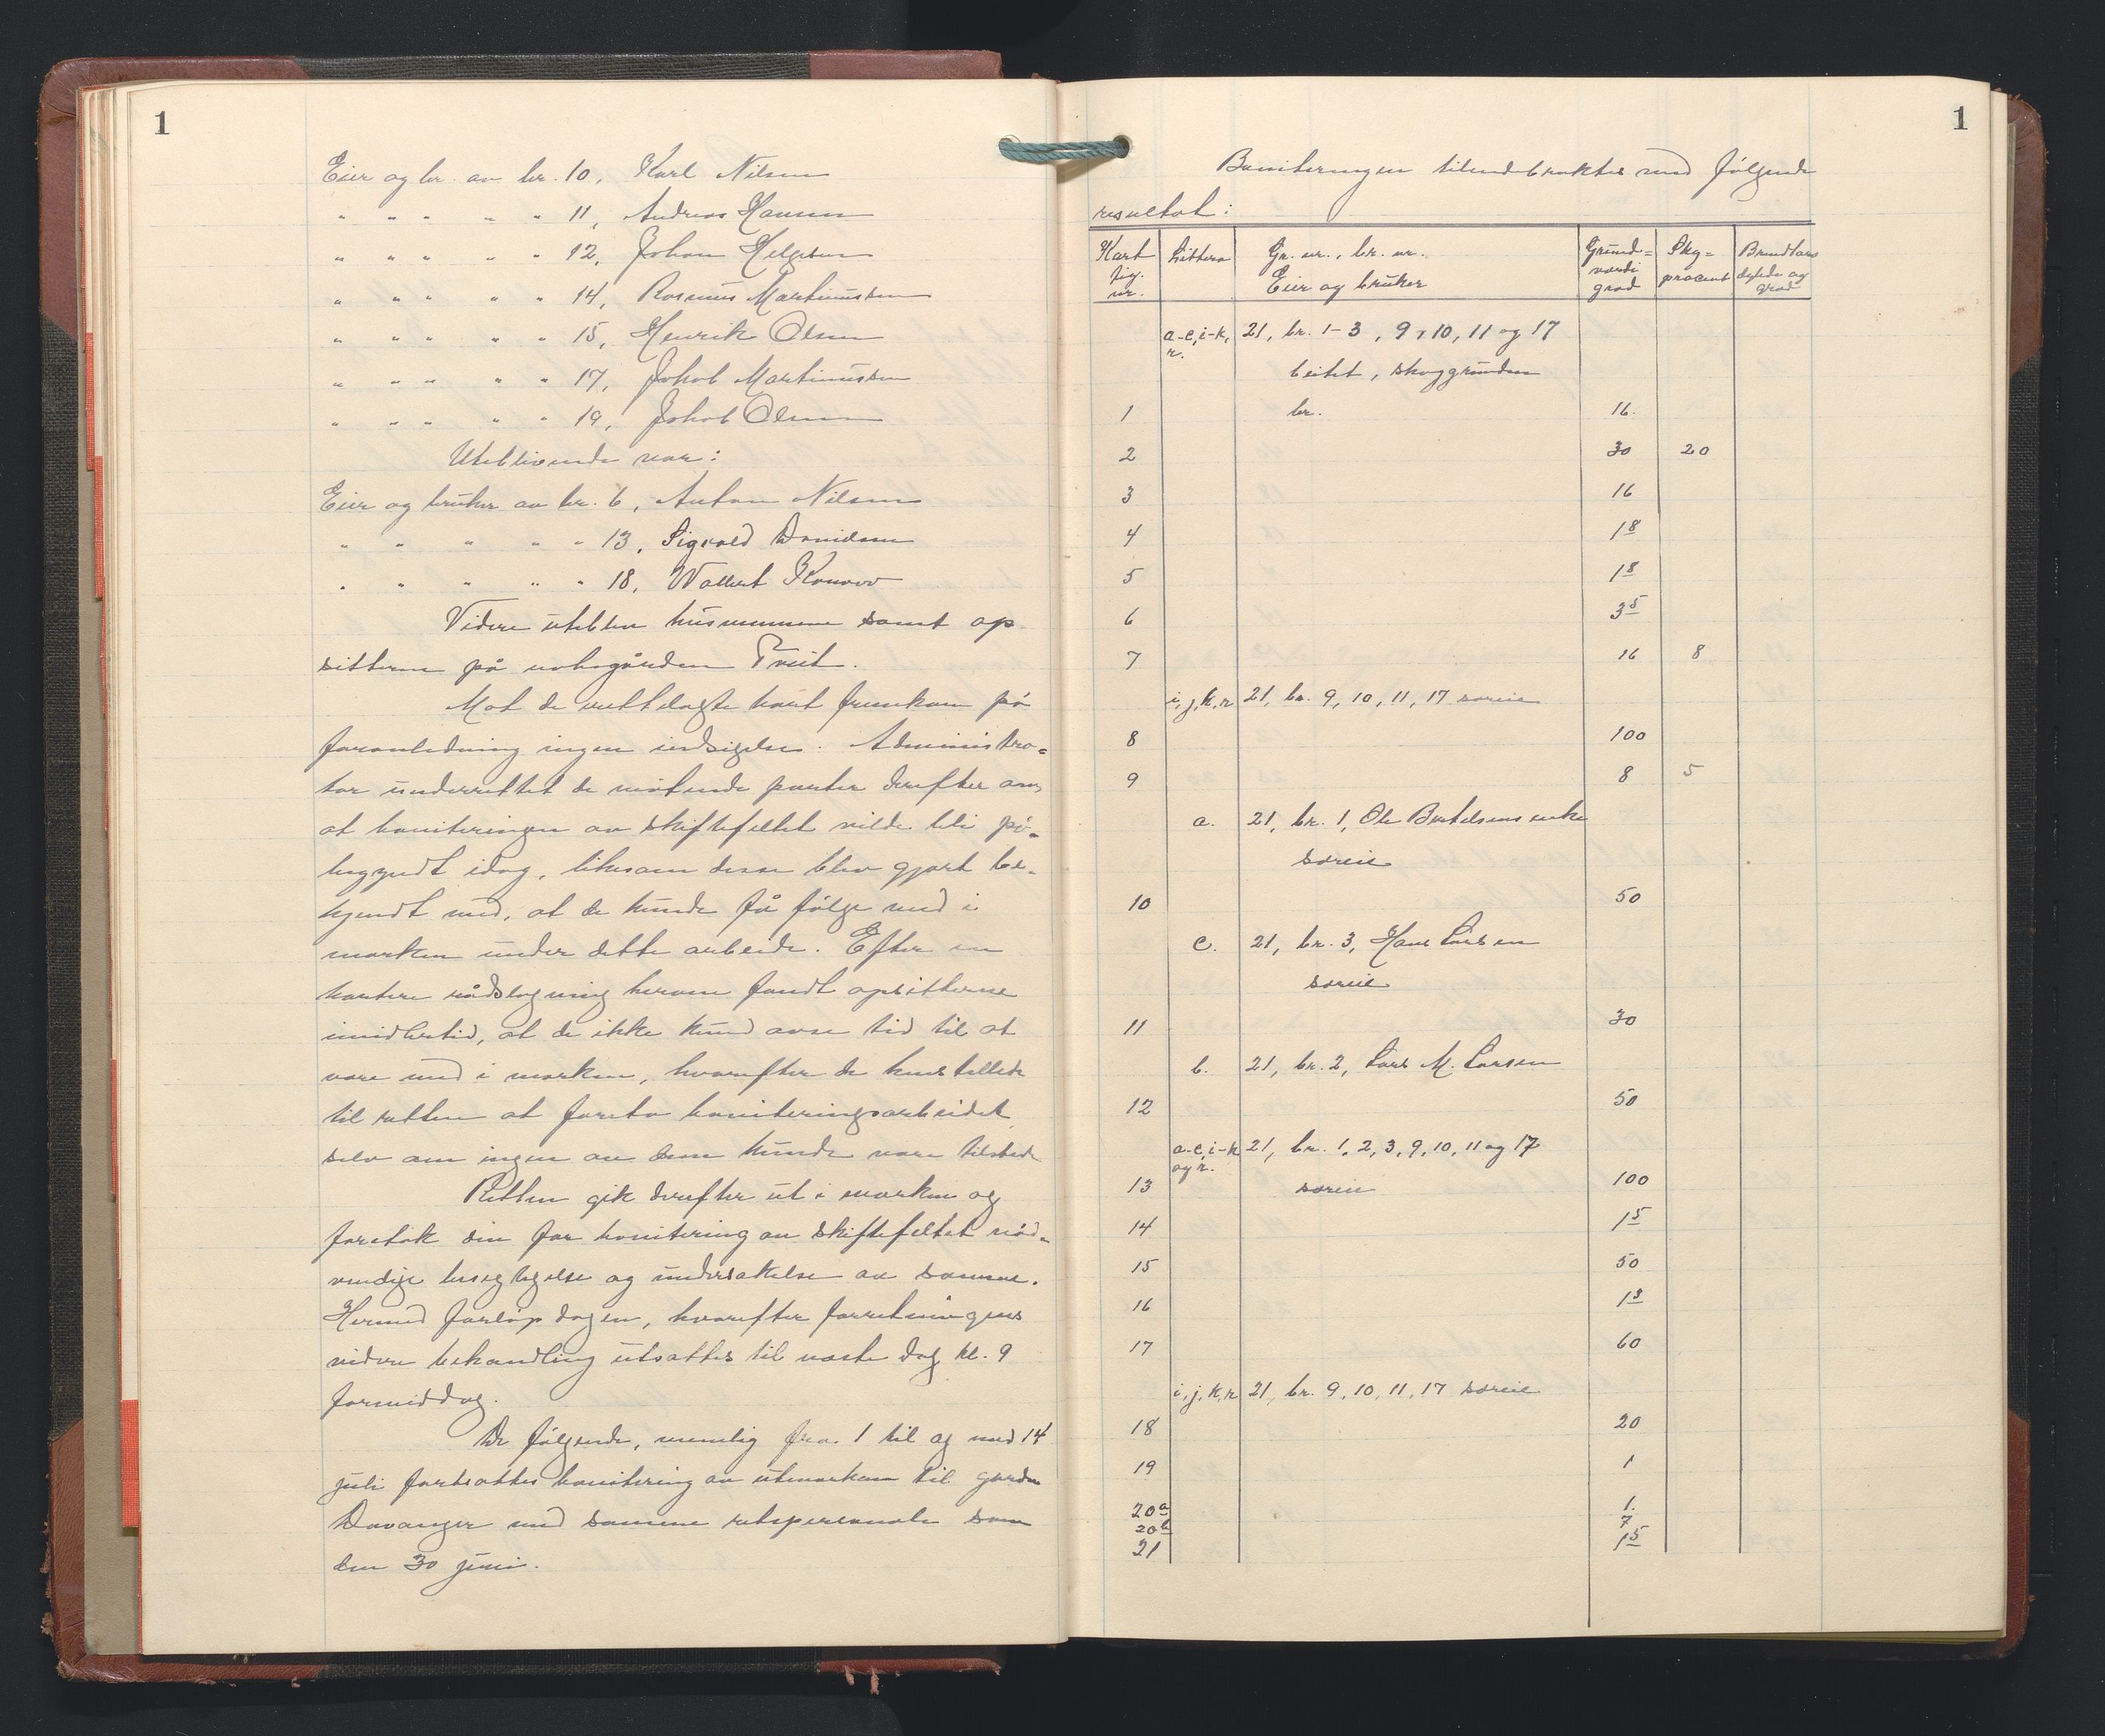 1
Eier og br. av br. 10, Karl Nilsen
" " " " " 11, Andreas Hansen
" " " " " 12, Johan Helgesen
" " " " " 14, Rasmus Martinussen
" " " " " 15, Henrik Olsen
" " " " " 17, Jakob Martinussen
" " " " " 19, Jakob Olsen
Uteblivende var:
Eier og bruker av br. 6, Anton Nilsen
" " " " " 13, Sigvald Danielsen
" " " " " 18, Wallert Konow
Videre uteblev husmennene samt op
sitterne på nabogården Tveit.
Mot de utlagte kart fremkom på
foranledning ingen indsigelse. Administra=
tor underrettet de møtende parter derefter om,
at boniteringen av skiftefeltet vilde bli på-
begyndt idag, likesom disse blev gjort be-
kjendt med, at de kunde få følge med i
marken under dette arbeide. Efter en
kortere rådslagning herom fandt opsitterne
imidlertid, at de ikke kund avse tid til at
være med i marken, hvorefter de henstillede
til retten at foreta boniteringsarbeidet
selv om ingen av dem kunde være tilstede
Retten gik derefter ut i marken og
foretok sin for bonitering av skiftefeltet nød-
vendige besigtigelse og undersøkelse av samme.
Hermed forløp dagen, hvorefter forretningens
videre behandling utsattes til næste dag kl. 9
formiddag.
De følgende, nemlig fra 1 til og med 14
juli fortsattes bonitering av utmarken til gården
Davanger med samme retspersonale som
den 30 juni.
1
Boniteringen tilendebraktes med følgende
resultat:
Kart fig. nr. Littera Gr. nr., br. nr. Eier og bruker Grund=værdi grad Skg=procent Brudtlands dybde og grad
a-c, i-k, r. 21, br. 1-3, 9, 10, 11 og 17
beitet, skoggrunden
1 br. 16.
2 30 20
3 16
4 18
5 18
6 35
7 16 8
i, j, k, r 21, br. 9, 10, 11, 17 særeie
8 100
9 8 5
a. 21, br. 1, Ole Bertelsens enke
særeie
10 50
c. 21, br. 3, Hans Larsen
særeie
11 30
b. 21, br. 2, Lars M. Larsen
12 50
a-c, i-k og r. 21, br. 1, 2, 3, 9, 10, 11 og 17
13 særeie 100
14 15
15 50
16 13
17 60
i, j, k, r 21, br. 9, 10, 11, 17 særeie
18 20
19 1
20a 1.
20b 7
21 15